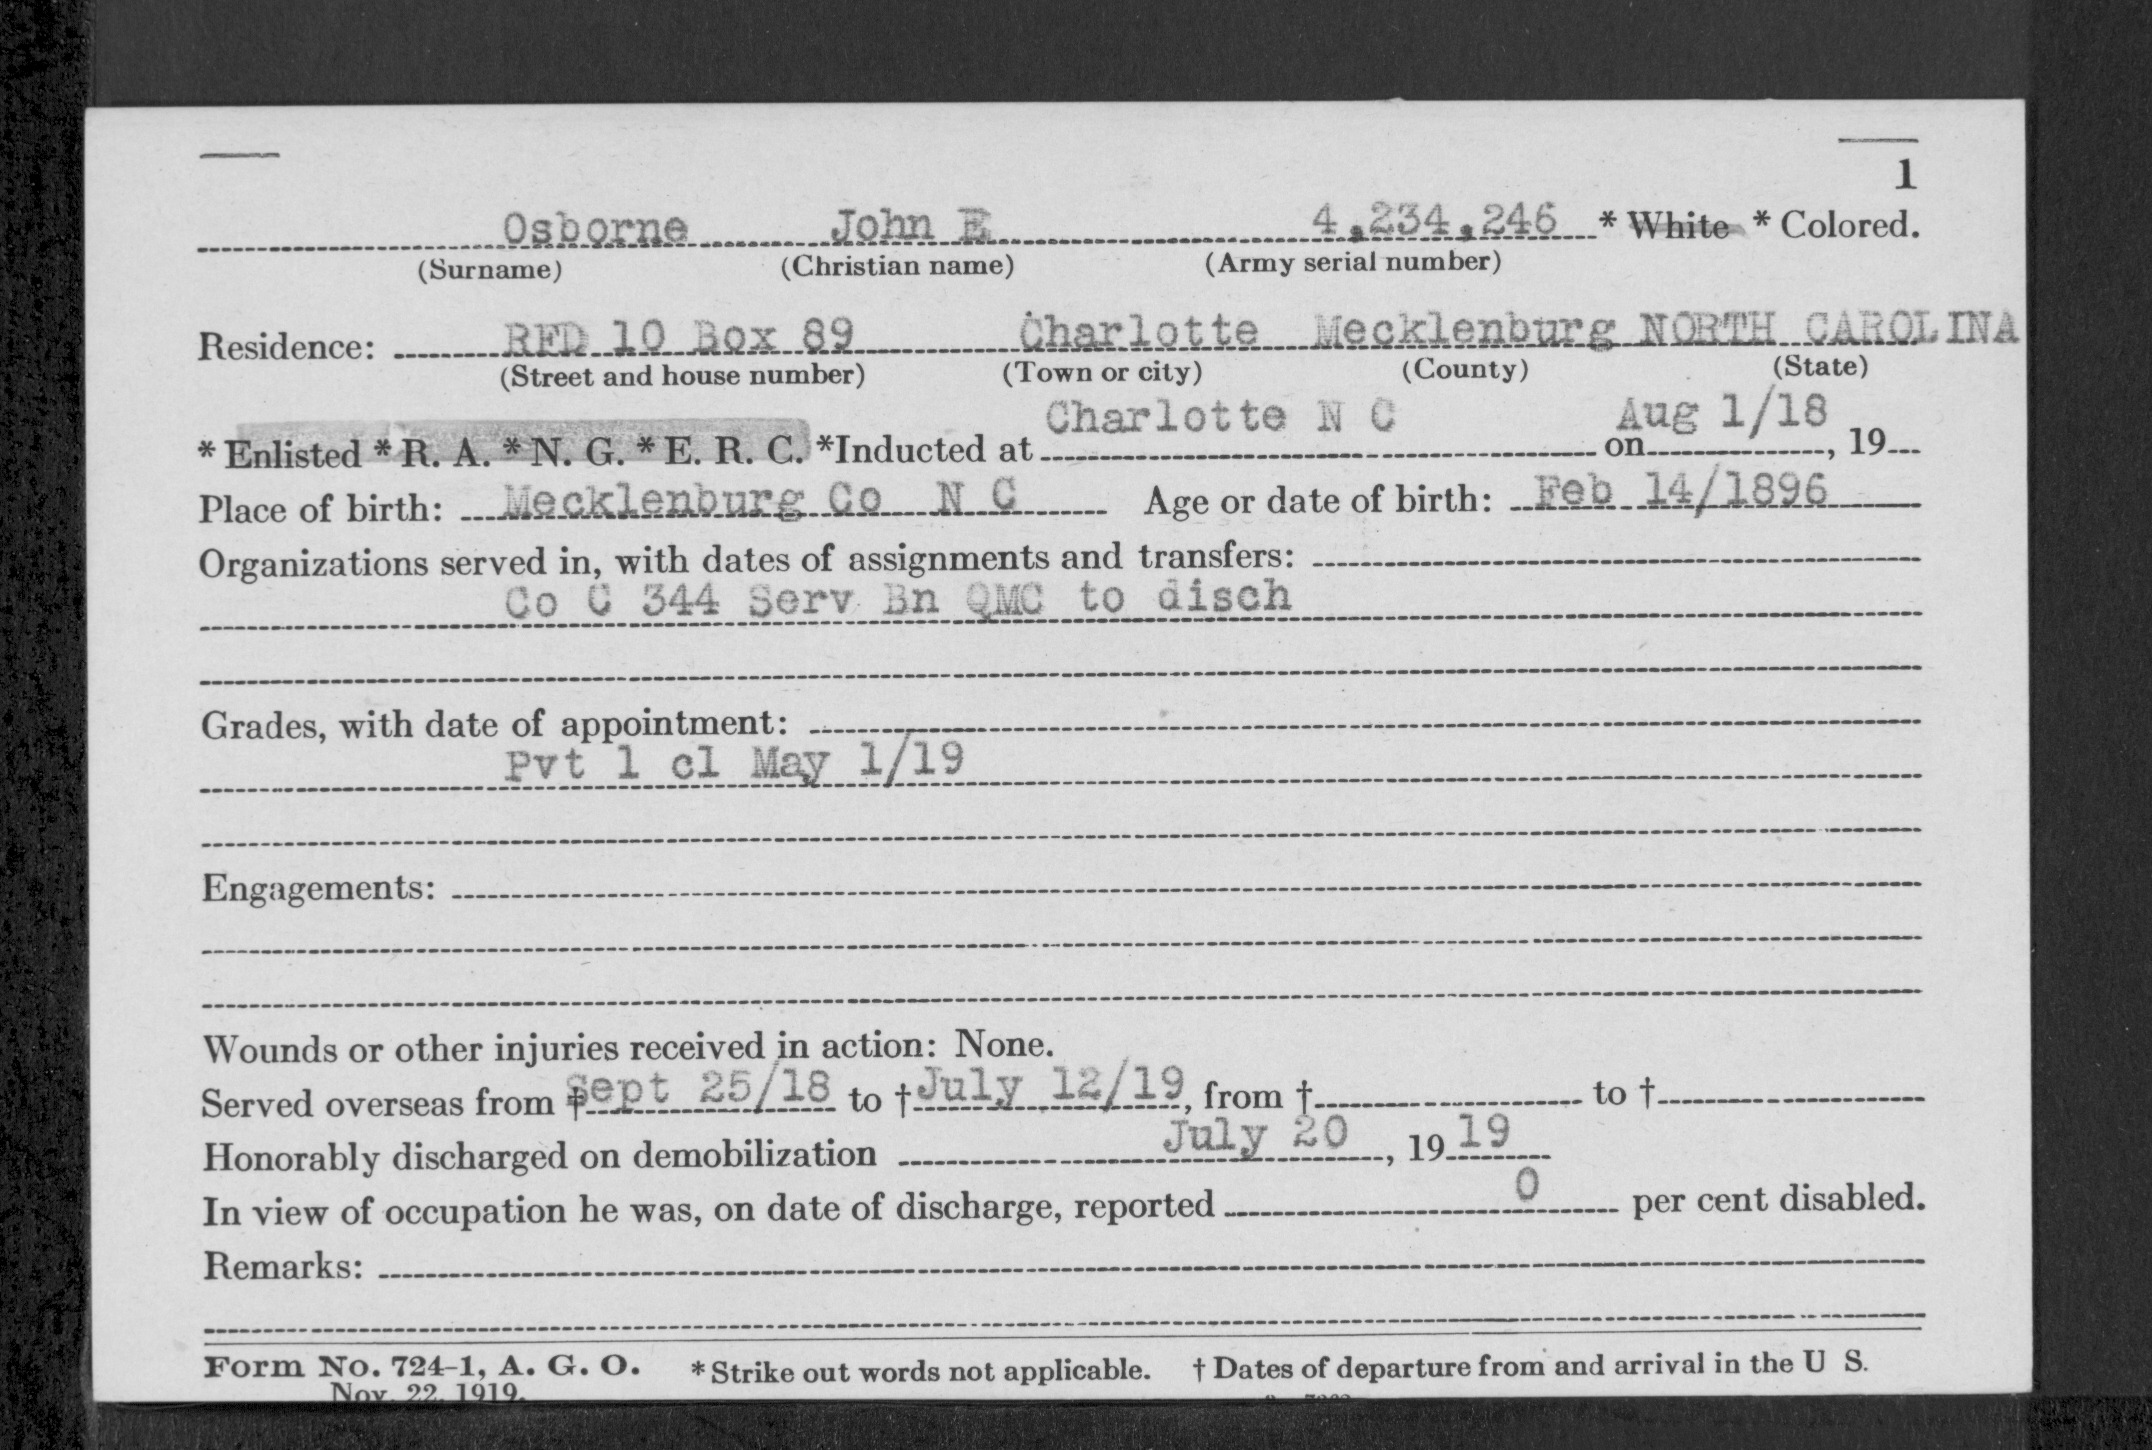 1
Osborne John E 4,234,246 * White * Colored.
(Surname) (Christian name) (Army serial number)
Residence: RFD 10 Box 89 Charlotte Mecklenburg NORTH CAROLINA
(Street and house number) (Town or city) (County) (State)
* Enlisted * R. A. * N. G. * E. R. C. *Inducted at Charlotte N C on Aug 1/18, 19
Place of birth: Mecklenburg Co N C Age or date of birth: Feb 14/1896
Organizations served in, with dates of assignments and transfers:
Co C 344 Serv Bn QMC to disch
Grades, with date of appointment:
Pvt 1 cl May 1/19
Engagements:
Wounds or other injuries received in action: None.
Served overseas from † Sept 25/18 to † July 12/19, from † to †
Honorably discharged on demobilization July 20, 19 19
In view of occupation he was, on date of discharge, reported 0 per cent disabled.
Remarks:
Form No. 724-1, A. G. O. * Strike out words not applicable. † Dates of departure from and arrival in the U S.
Nov. 22, 1919.